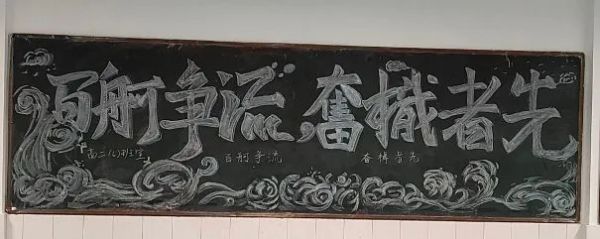 百舸争流,奮檝者先
高二 班
百舸争流
奋楫者先